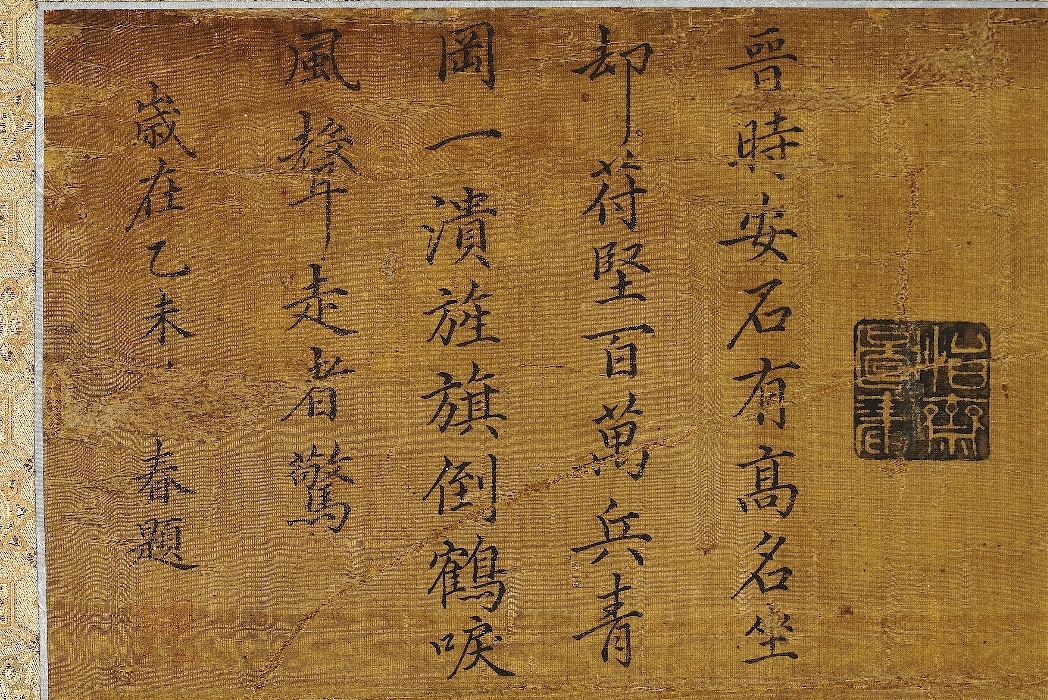 晉時安石有高名坐
却苻堅百萬兵青
岡一潰旌旗倒鶴唳
風聲走者驚
歲在乙未春題